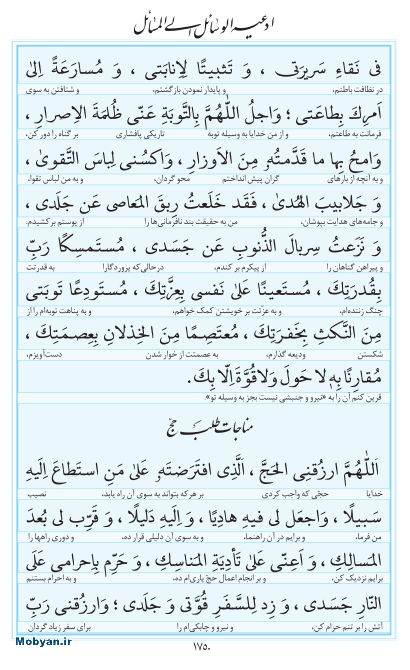 ادعیة الوسائل الی المسائل
فی نَقاءِ سَریرَتی ، وَ تَثبیتًا لِاِنابَتی ، وَ مُسارَعَةً اِلیٰ
در نظافت باطنم، و پایدار نمودن بازگشتم، و شتافتن به سوی
اَمرِكَ بِطاعَتی ؛ وَاجلُ اللّٰهُمَّ بِالتَّوبَةِ عَنّی ظُلمَةَ الاِصرارِ ،
فرمانت به طاعتم، و از من خدایا به وسیله توبه تاریکی پافشاری بر گناه را دور کن،
وَامحُ بِها ما قَدَّمتُهُ مِنَ الاَوزارِ ، وَاكسُنی لِباسَ التَّقویٰ ،
و به آنچه از بارهای گران پیش انداختم محو گردان، و به من لباس تقوا،
وَ جَلابیبَ الهُدیٰ ، فَقَد خَلَعتُ رِبقَ المَعاصی عَن جَلَدی ،
و جامه‌های هدایت بپوشان، من به حقیقت بند نافرمانی‌ها را از پوستم برکشیدم.
وَ نَزَعتُ سِربالَ الذُّنوبِ عَن جَسَدی ، مُستَمسِكًا رَبِّ
و پیراهن گناهان را از پیکرم بر کندم، درحالی‌که پروردگارا به قدرتت
بِقُدرَتِكَ ، مُستَعینًا عَلیٰ نَفسی بِعِزَّتِكَ ، مُستَودِعًا تَوبَتی
چنگ زننده‌ام، و به عزتت بر خویشتن کمک خواهم، و به پناهت توبه‌ام را از
مِنَ النَّكثِ بِخَفرَتِكَ ، مُعتَصِمًا مِنَ الخِذلانِ بِعِصمَتِكَ ،
شکستن ودیعه گذارم، به عصمتت از خوار شدن دست‌آویزم،
مُقارِنًا بِهٖ لا حَولَ وَلا قُوَّةَ اِلّا بِكَ.
قرین کنم آن را به «نیرو و جنبشی نیست بجز به وسیله تو».
مناجات طلب حج
اَللّٰهُمَّ ارزُقنِی الحَجَّ ، اَلَّذِی افتَرَضتَهٗ عَلیٰ مَنِ استَطاعَ اِلَیهِ
خدایا حجّی که واجب کردی بر هر که بتواند به سوی آن راه یابد، نصیب
سَبیلًا ، وَاجعَل لی فیهِ هادِیًا ، وَ اِلَیهِ دَلیلًا ، وَ قَرِّب لی بُعدَ
من فرما، و برایم در آن راهنما، و به سوی آن دلیلی قرار ده، و دوری راهها را
المَسالِكِ ، وَ اَعِنّی عَلیٰ تَأدِیَةِ المَناسِكِ ، وَ حَرِّم بِاِحرامی عَلَی
برایم نزدیک کن، و بر انجام اعمال حج یاری‌ام ده، و به احرام بستنم
النّارِ جَسَدی ، وَ زِد لِلسَّفَرِ قُوَّتی وَ جَلَدی ؛ وَارزُقنی رَبِّ
آتش را بر تنم حرام کن، و نیرو و چابکی‌ام را برای سفر زیاد گردان
۱۷۵۰
Mobyan.ir